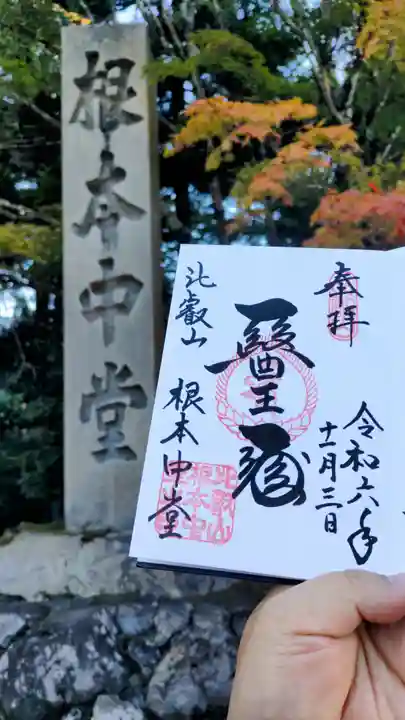 根本中堂
奉拝
令和六年
十一月三日
醫王殿
比叡山
根本中堂
比叡山
根本中
堂